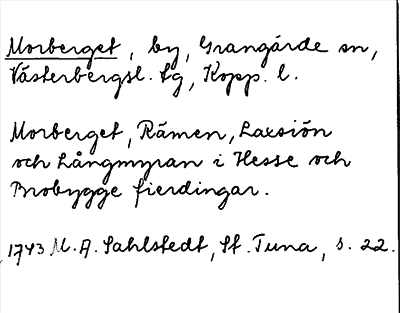 Morberget, by, Grangärde sn,
Västerbergsl. tg, Kopp. l.
Morberget, Rämen, Laxsiön
och Långmyran i Hesse och
Brobygge fierdingar.
1743 M. A. Sahlstedt, St. Tuna, s. 22.